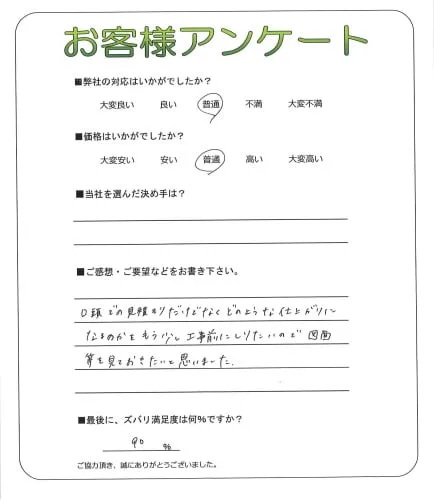 お客様アンケート
■弊社の対応はいかがでしたか？
大変良い　良い　普通　不満　大変不満
■価格はいかがでしたか？
大変安い　安い　普通　高い　大変高い
■当社を選んだ決め手は？
■ご感想・ご要望などをお書き下さい。
口頭での見積りだけでなくどのような仕上がりに
なるのかをもう少し工事前にしりたいので図面
等を見ておきたいと思いました.
■最後に、ズバリ満足度は何%ですか？
90 %
ご協力頂き、誠にありがとうございました。